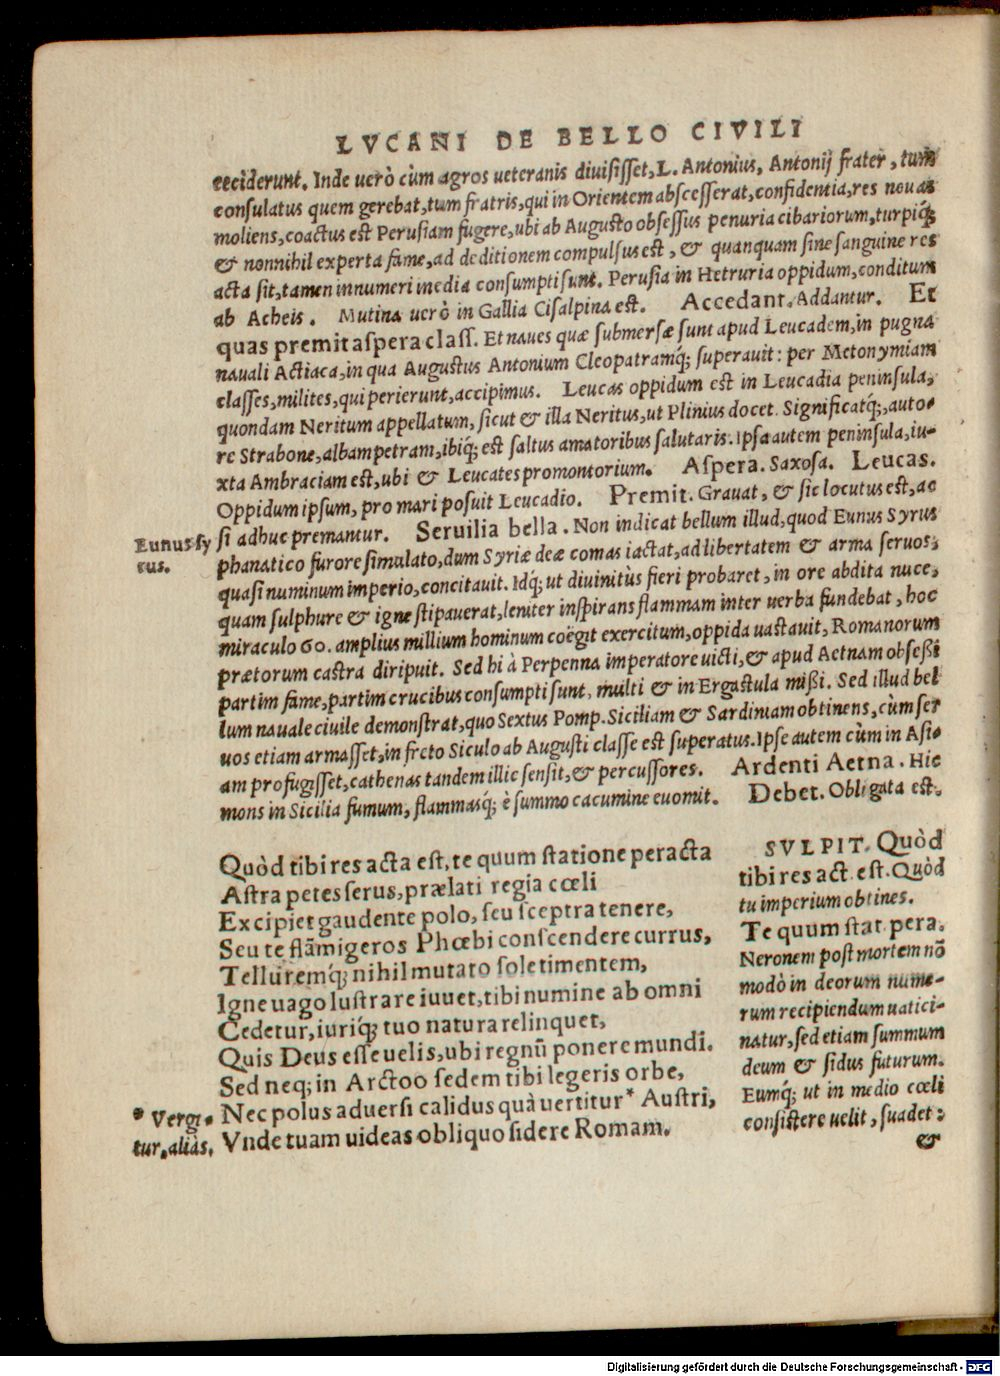 LVCANI DE BELLO CIVILI
ceciderunt. Inde uerò cùm agros ueteranis diuisisset, L. Antonius, Antonij frater, tum
consulatus quem gerebat, tum fratris, qui in Orientem abscesserat, confidentia, res nouas
moliens, coactus est Perusiam fugere, ubi ab Augusto obsessus penuria cibariorum, turpiq́;
& nonnihil experta fame, ad deditionem compulsus est, & quanquam sine sanguine res
acta sit, tamen innumeri inedia consumpti sunt. Perusia in Hetruria oppidum, conditum
ab Acheis. Mutina uerò in Gallia Cisalpina est. Accedant. Addantur. Et
quas premit aspera class. Et naues quæ submersæ sunt apud Leucadem, in pugna
nauali Actiaca, in qua Augustus Antonium Cleopatramq́; superauit: per Metonymiam
classes, milites, qui perierunt, accipimus. Leucas oppidum est in Leucadia peninsula,
quondam Neritum appellatum, sicut & illa Neritus, ut Plinius docet. Significatq́;, auto-
re Strabone, albam petram, ibiq́; est saltus amatoribus salutaris. Ipsa autem peninsula, iu-
xta Ambraciam est, ubi & Leucates promontorium. Aspera. Saxosa. Leucas.
Oppidum ipsum, pro mari posuit Leucadio. Premit. Grauat, & sic locutus est, ac
si adhuc premantur. Seruilia bella. Non indicat bellum illud, quod Eunus Syrus
Eunus sy
rus.
phanatico furore simulato, dum Syriæ deæ comas iactat, ad libertatem & arma seruos,
quasi numinum imperio, concitauit. Idq; ut diuinitùs fieri probaret, in ore abdita nuce,
quam sulphure & igne stipauerat, leniter inspirans flammam inter uerba fundebat, hoc
miraculo 60. amplius millium hominum coëgit exercitum, oppida uastauit, Romanorum
prætorum castra diripuit. Sed hi à Perpenna imperatore uicti, & apud Aetnam obseßi
partim fame, partim crucibus consumpti sunt, multi & in Ergastula mißi. Sed illud bel
lum nauale ciuile demonstrat, quo Sextus Pomp. Siciliam & Sardiniam obtinens, cùm ser
uos etiam armasset, in freto Siculo ab Augusti classe est superatus. Ipse autem cùm in Asi-
am profugisset, cathenas tandem illic sensit, & percussores. Ardenti Aetna. Hic
mons in Sicilia fumum, flammasq́; è summo cacumine euomit. Debet. Obligata est.
Quòd tibi res acta est, te quum statione peracta
Astra petes serus, prælati regia cœli
Excipiet gaudente polo, seu sceptra tenere,
Seu te flãmigeros Phœbi conscendere currus,
Telluremq́; nihil mutato sole timentem,
Igne uago lustrare iuuet, tibi numine ab omni
Cedetur, iuriq́; tuo natura relinquet,
Quis Deus esse uelis, ubi regnũ ponere mundi.
Sed neq; in Arctoo sedem tibi legeris orbe,
Nec polus aduersi calidus quà uertitur* Austri,
Vnde tuam uideas obliquo sidere Romam.
* Vergi-
tur, aliâs.
SVLPIT. Quòd
tibi res act. est. Quòd
tu imperium obtines.
Te quum stat. pera.
Neronem post mortem nõ
modò in deorum nume-
rum recipiendum uatici-
natur, sed etiam summum
deum & sidus futurum.
Eumq́; ut in medio cœli
consistere uelit, suadet:
&
Digitalisierung gefördert durch die Deutsche Forschungsgemeinschaft - DFG